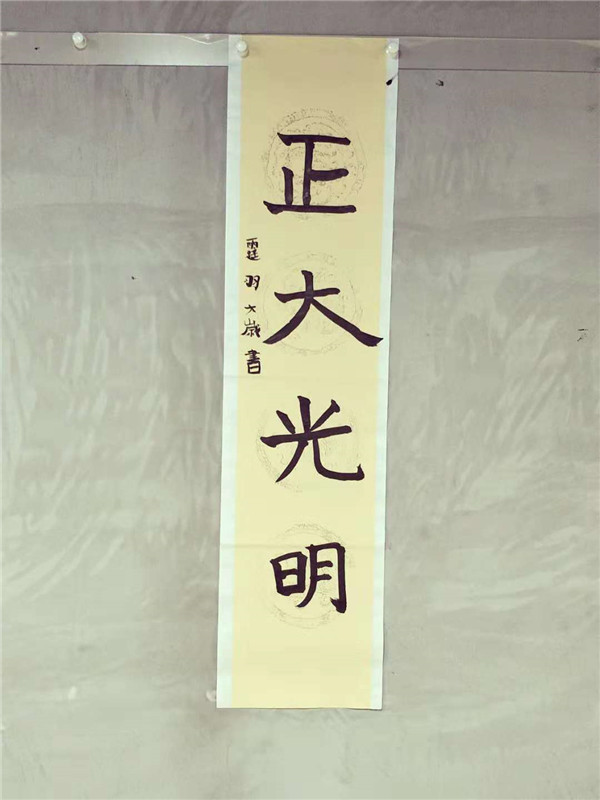 正大光明
霆羽大歲書